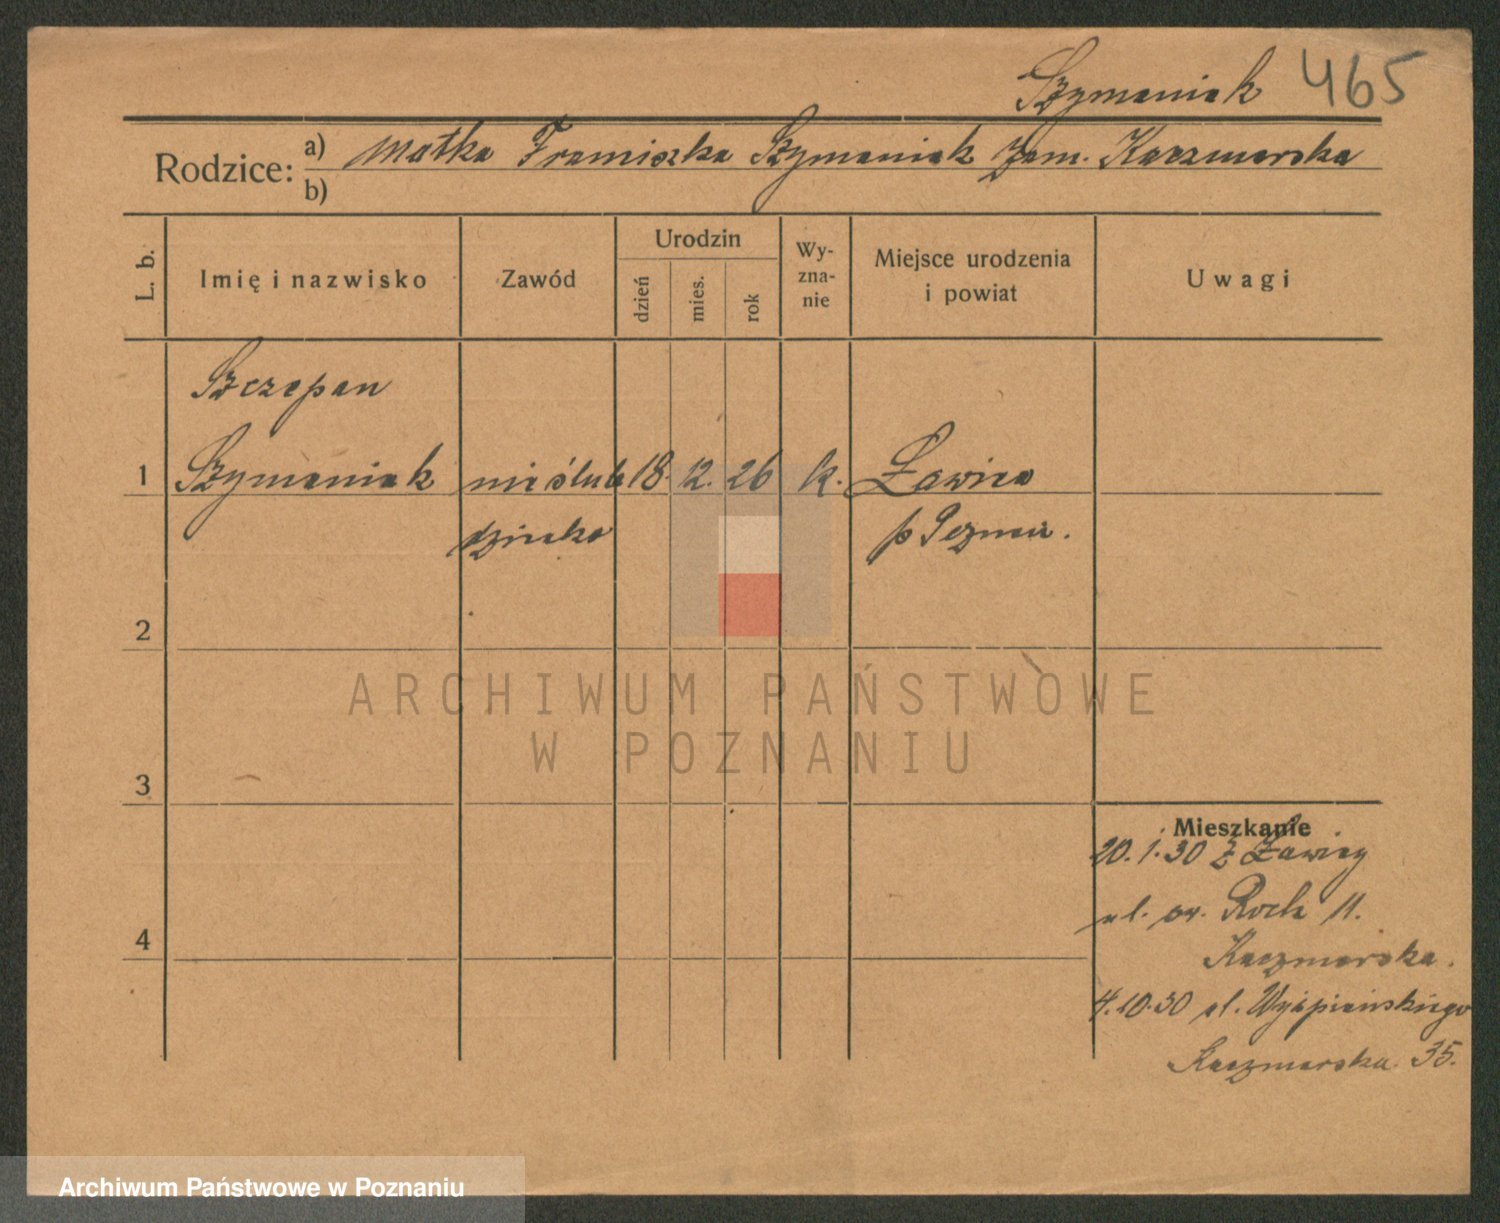 Szymaniak 465
Rodzice: a) matka Franciszka Szymaniak zam. Kaczmarska
b)
L. b.
Imię i nazwisko
Zawód
Urodzin
dzień
mies.
rok
Wy-
zna-
nie
Miejsce urodzenia
i powiat
Uwagi
Szczepan
1 Szymaniak nieślub 18. 12. 26 k. Ławica
dziecko p Poznań.
2
3
4
Mieszkanie
20.1.30 z Ławicy
ul. św. Rocha 11.
Kaczmarska.
4.10.30 ul. Wyspiańskiego
Kaczmarska. 35.
ARCHIWUM PAŃSTWOWE
W POZNANIU
Archiwum Państwowe w Poznaniu